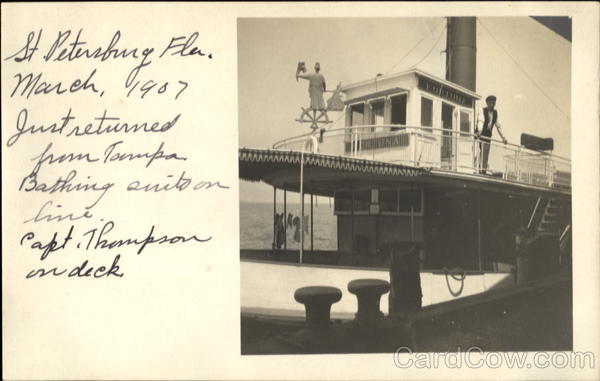 St Petersburg Fla.
March, 1907
Just returned
from Tampa
Bathing suits on
line.
Capt. Thompson
on deck
CardCow.com